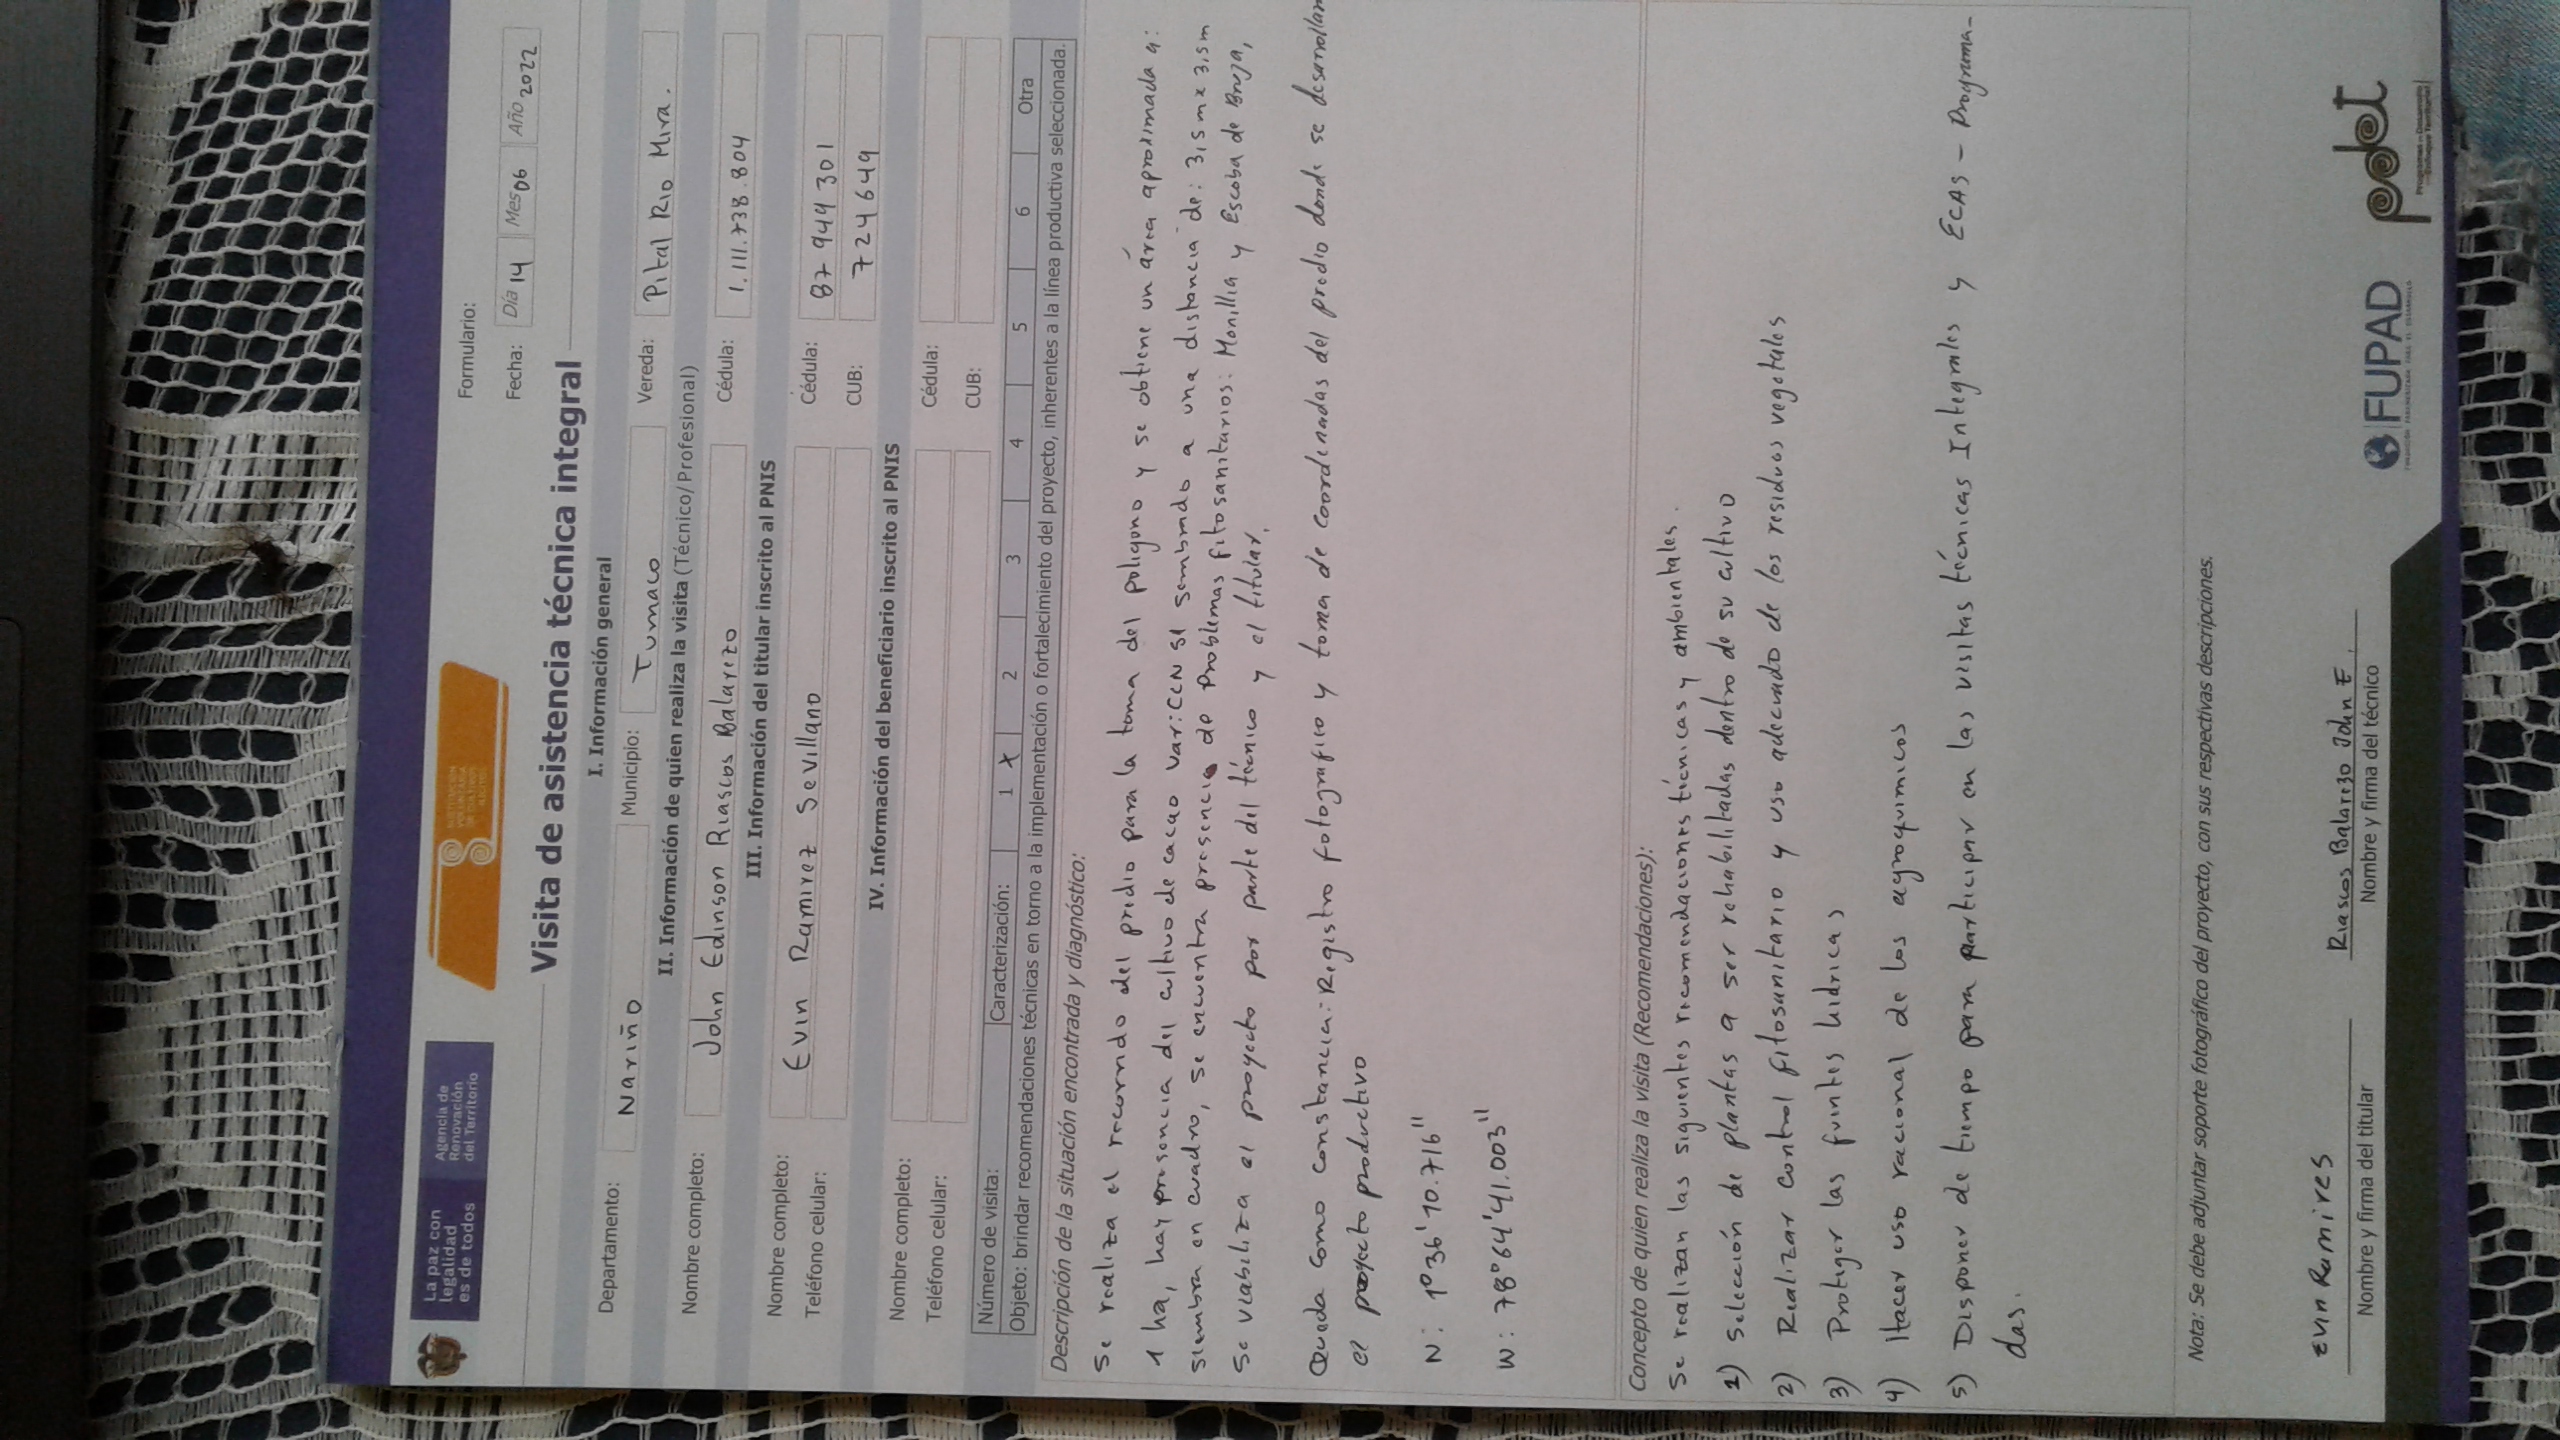 La paz con
legalidad
es de todos
Agencia de
Renovación
del Territorio
Formulario:
Fecha: Día 14 Mes 06 Año 2022
Visita de asistencia técnica integral
I. Información general
Departamento: Nariño Municipio: Tumaco Vereda: Pital Rio Mira.
II. Información de quien realiza la visita (Técnico/Profesional)
Nombre completo: John Edinson Riascos Balarezo Cédula: 1.111.738.804
III. Información del titular inscrito al PNIS
Nombre completo: Evin Ramirez Sevillano Cédula: 87 944 301
Teléfono celular: CUB: 724649
IV. Información del beneficiario inscrito al PNIS
Nombre completo: Cédula:
Teléfono celular: CUB:
Número de visita: Caracterización: 1 X 2 3 4 5 6 Otra
Objeto: brindar recomendaciones técnicas en torno a la implementación o fortalecimiento del proyecto, inherentes a la línea productiva seleccionada.
Descripción de la situación encontrada y diagnóstico:
Se realiza el recorrido del predio para la toma del poligono y se obtiene un área aproximada a:
1 ha, hay presencia del cultivo de cacao var: CCN 51 sembrado a una distancia de: 3,5 m x 3,5m
siembra en cuadro, se encuentra presencia de Problemas fitosanitarios: Monillia y Escoba de Bruja,
Se viabiliza el proyecto por parte del técnico y el titular.
Queda como constancia: Registro fotografico y toma de coordenadas del predio donde se desarrollara
el proyecto productivo
N: 1°36'10.716"
W: 78°64'41.003"
Concepto de quien realiza la visita (Recomendaciones):
Se realizan las siguientes recomendaciones técnicas y ambientales.
1) Selección de plantas a ser rehabilitadas dentro de su cultivo
2) Realizar control fitosanitario y uso adecuado de los residuos vegetales
3) Proteger las fuentes hidricas
4) Hacer uso racional de los agroquimicos
5) Disponer de tiempo para participar en las visitas técnicas Integrales y ECAS - Programa-
das.
Nota: Se debe adjuntar soporte fotográfico del proyecto, con sus respectivas descripciones.
Evin Ramires
Nombre y firma del titular
Riascos Balarezo John E.
Nombre y firma del técnico
FUPAD
pdet